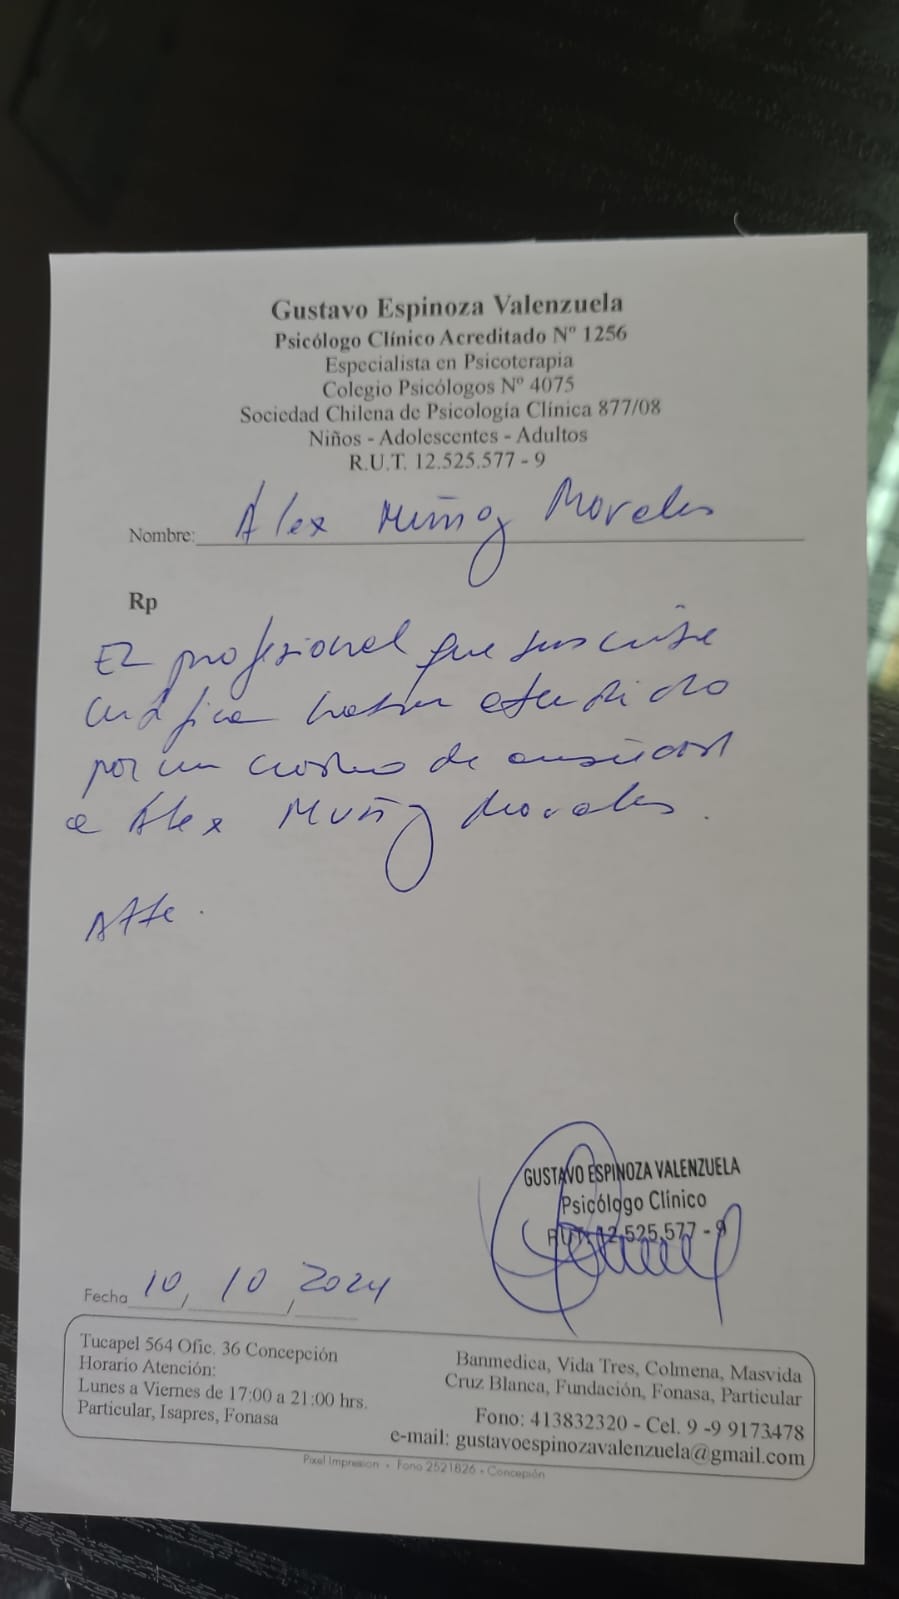 Gustavo Espinoza Valenzuela
Psicólogo Clínico Acreditado Nº 1256
Especialista en Psicoterapia
Colegio Psicólogos Nº 4075
Sociedad Chilena de Psicología Clínica 877/08
Niños - Adolescentes - Adultos
R.U.T. 12.525.577 - 9
Nombre: Álex Muñoz Morales
Rp
El profesional que suscribe
certifica haber atendido
por un cuadro de ansiedad
a Álex Muñoz Morales.
Atte.
GUSTAVO ESPINOZA VALENZUELA
Psicólogo Clínico
RUT: 12.525.577 - 9
Fecha 10, 10, 2024
Tucapel 564 Ofic. 36 Concepción
Horario Atención:
Lunes a Viernes de 17:00 a 21:00 hrs.
Particular, Isapres, Fonasa
Banmedica, Vida Tres, Colmena, Masvida
Cruz Blanca, Fundación, Fonasa, Particular
Fono: 413832320 - Cel. 9 -9 9173478
e-mail: gustavoespinozavalenzuela@gmail.com
Pixel Impresion - Fono 2521826 - Concepción